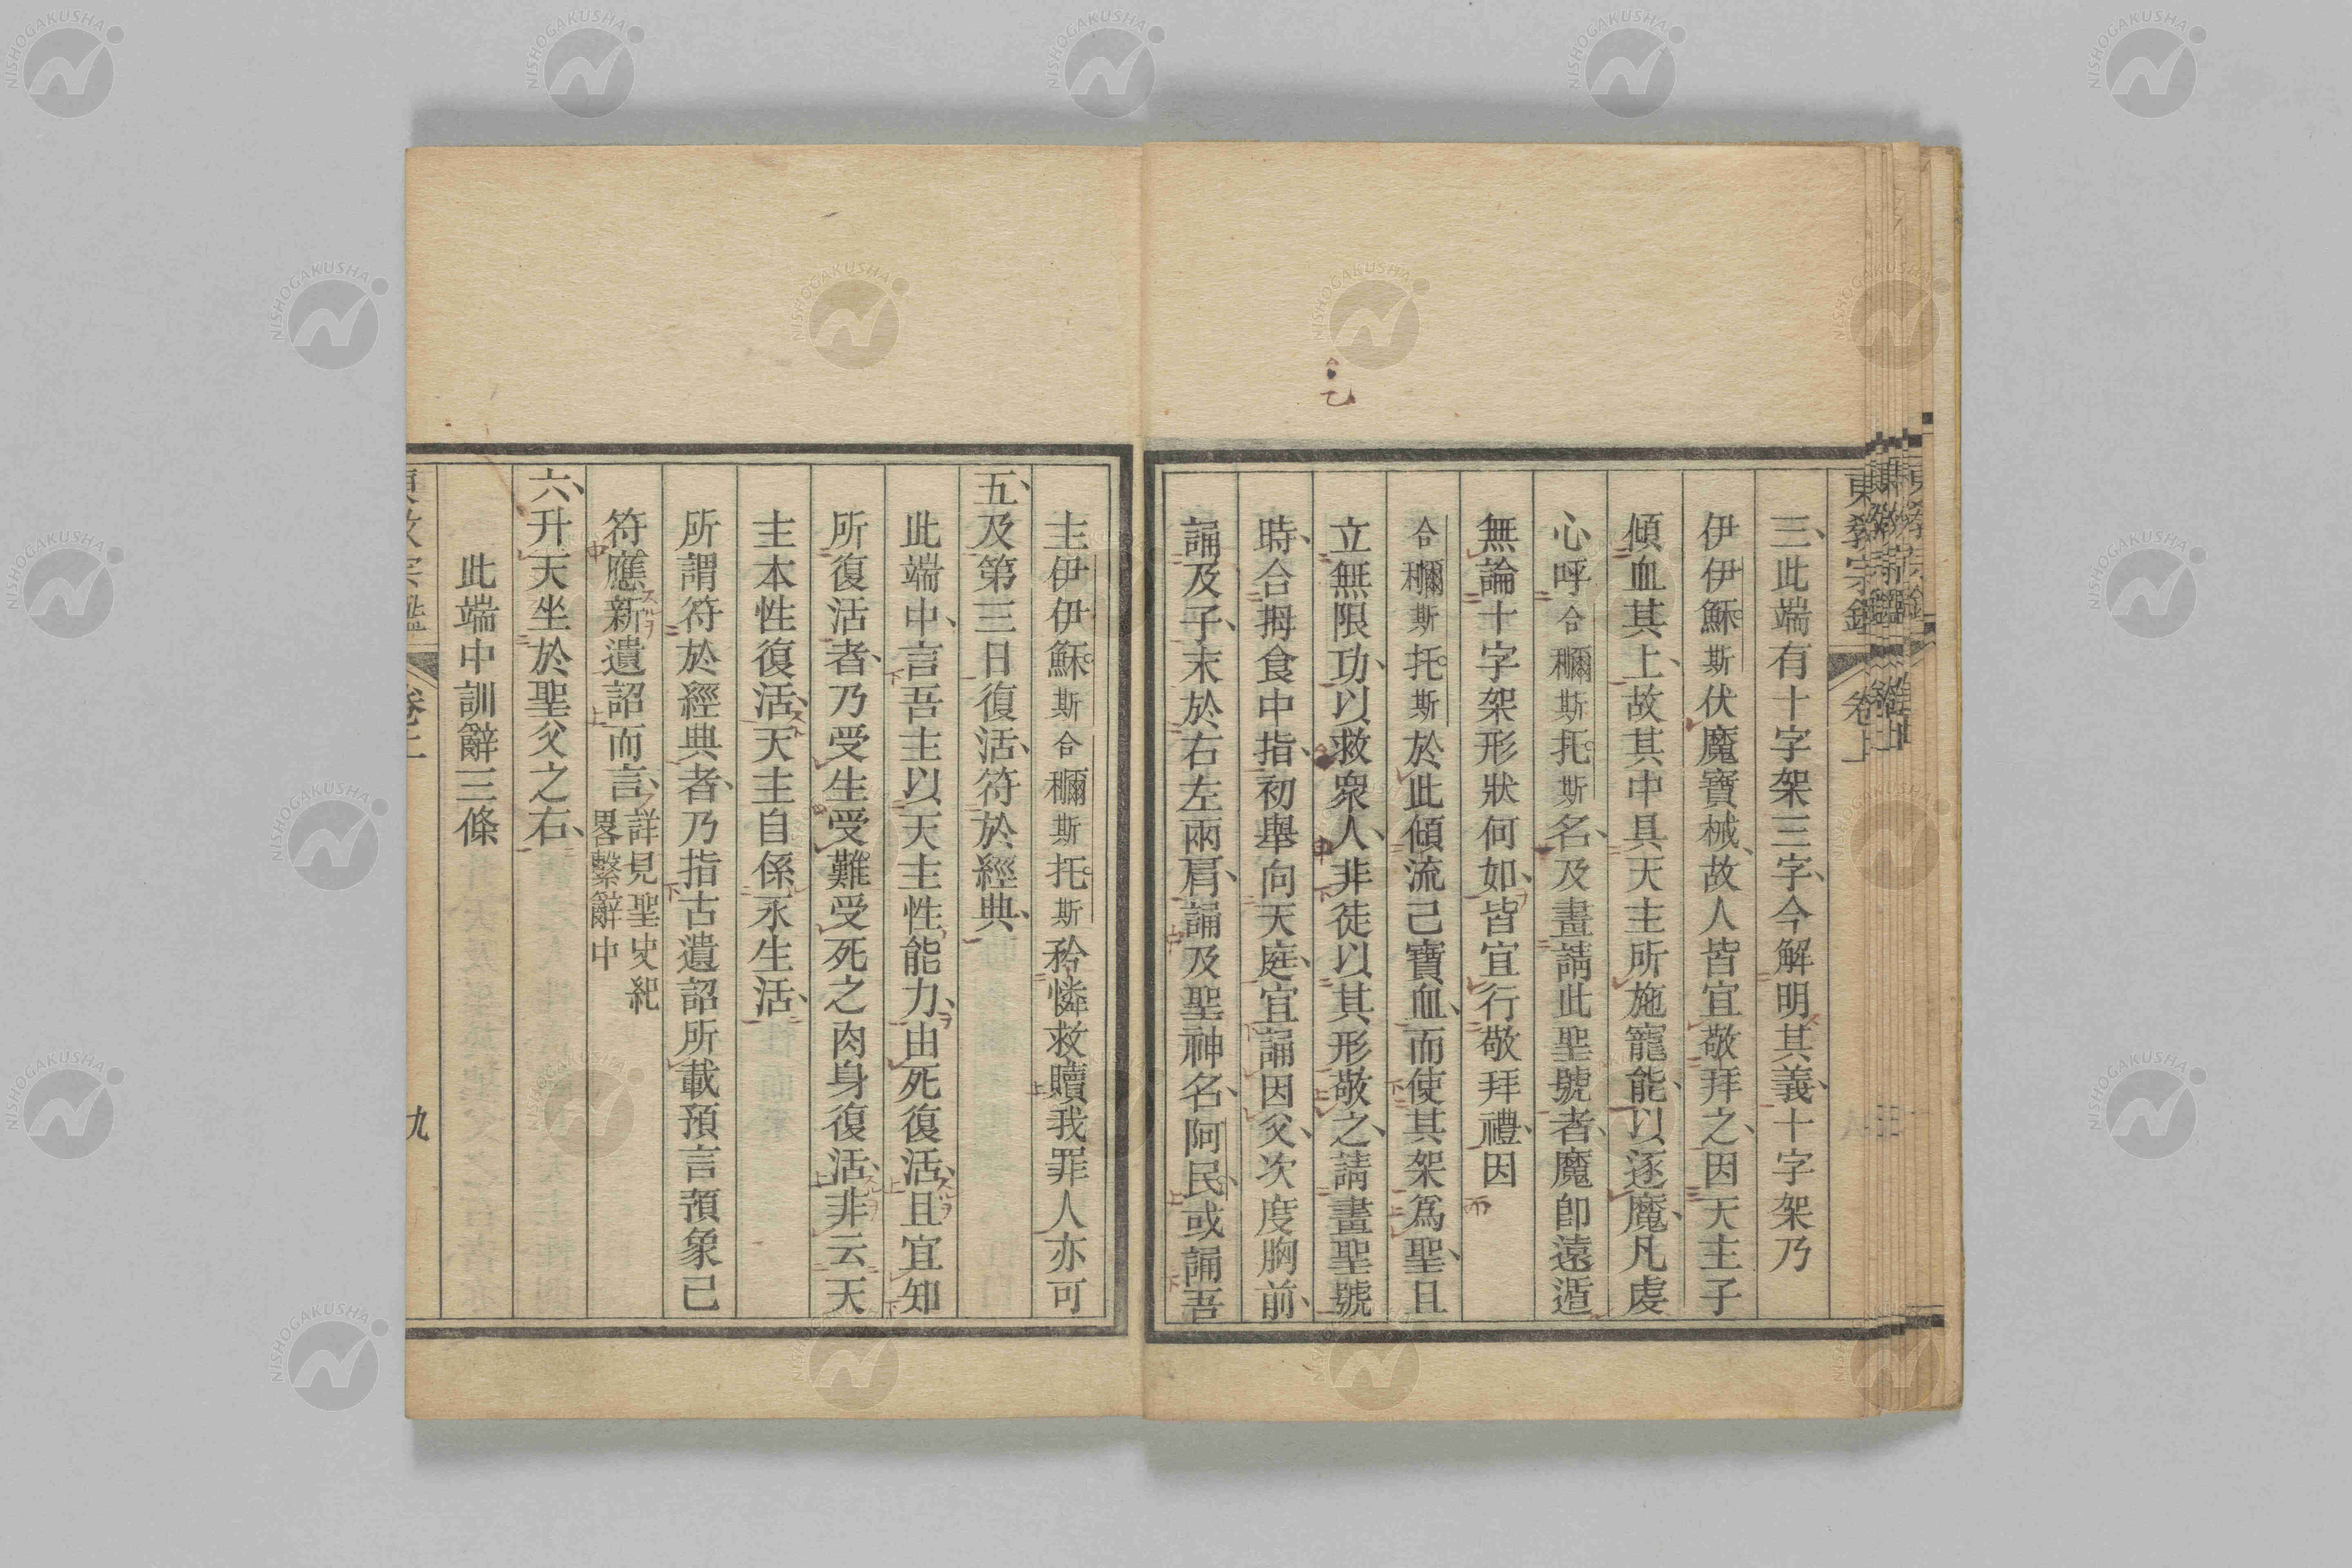 東教宗鑑 卷上
三、此端有十字架三字、今解明其義、十字架乃
伊伊穌斯伏魔寶械、故人皆宜敬拜之、因天主子
傾血其上、故其中具天主所施寵能、以逐魔、凡處
心呼合穪斯托斯名、及畫請此聖號者、魔即遠遁
無論十字架形狀何如、皆宜行敬拜禮、因
合穪斯托斯於此傾流己寶血、而使其架爲聖、且
立無限功、以救衆人、非徒以其形敬之、請畫聖號
時、合拇食中指、初舉向天庭、宜誦因父、次度胸前、
誦及子、末於右左兩肩、誦及聖神名、阿民、或誦吾
主伊伊穌斯合穪斯托斯矜憐救贖我罪人亦可
五、及第三日復活、符於經典、
此端中、言吾主以天主性能力、由死復活、且宜知
所復活者、乃受生受難受死之肉身復活、非云天
主本性復活、天主自係永生活、
所謂符於經典者、乃指古遺詔所載預言預象己
符應新遺詔而言、詳見聖史紀畧繫辭中
六、升天坐於聖父之右、
此端中訓辭三條
九
NISHOGAKUSHA